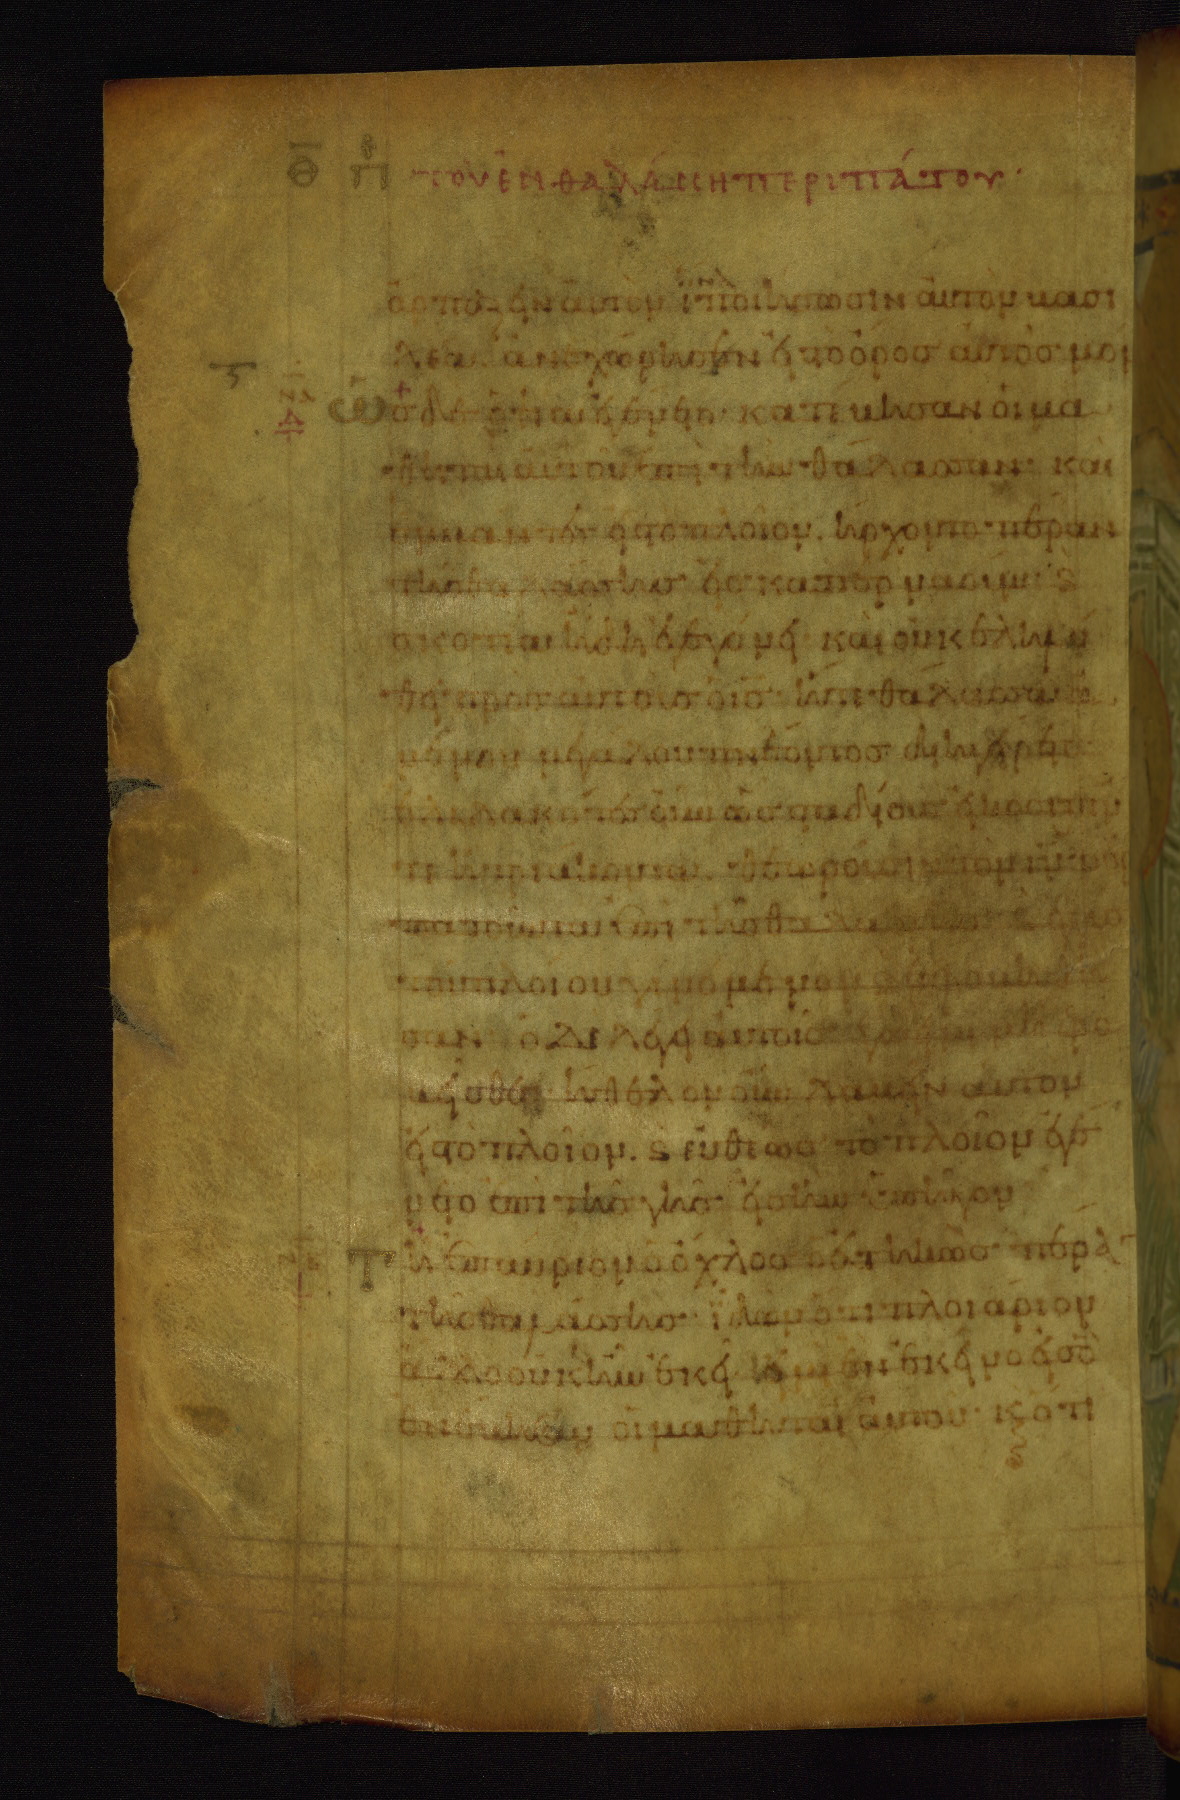 Θ Πε τοῦ ἐν θαλάσση περιπάτου
ἁρπάζειν αὐτὸν ἵνα ποιήσωσιν αὐτὸν βασι
λέα ἀνεχώρησεν εἰς τὸ ὄρος αὐτὸς μόν
ὡς δὲ ὀψία ἐγένετο κατέβησαν οἱ μα
θηταὶ αὐτοῦ ἐπὶ τὴν θάλασσαν καὶ
ἐμβάντες εἰς τὸ πλοῖον ἤρχοντο πέραν
τῆς θαλάσσης εἰς καπερναούμ ϗ
σκοτία ἤδη ἐγεγόνει καὶ οὐκ ἐληλύ
θει πρὸς αὐτοὺς ὁ ις ἥ τε θάλασσα
ἀνέμου μεγάλου πνέοντος διηγείρετο
ἐληλακότες οὖν ὡς σταδίους εἴκοσι πέν
τε ἢ τριάκοντα θεωροῦσιν τὸν ιν
περιπατοῦντα ἐπὶ τῆς θαλάσσης ϗ ἐγγὺς
τοῦ πλοίου γινόμενον ϗ ἐφοβήθη
σαν ὁ δὲ λέγει αὐτοῖς ἐγώ εἰμι μὴ φο
βεῖσθε ἤθελον οὖν λαβεῖν αὐτὸν
εἰς τὸ πλοῖον ϗ εὐθέως τὸ πλοῖον ἐγέ
νετο ἐπὶ τῆς γῆς εἰς ἣν ὑπῆγον
Τῇ ἐπαύριον ὁ ὄχλος ὁ ἑστηκὼς πέραν
τῆς θαλάσσης ἰδὼν ὅτι πλοιάριον
ἄλλο οὐκ ἦν ἐκεῖ εἰ μὴ ἓν ἐκεῖνο εἰς ὃ
ἐνέβησαν οἱ μαθηταὶ αὐτοῦ ϗ ὅτι